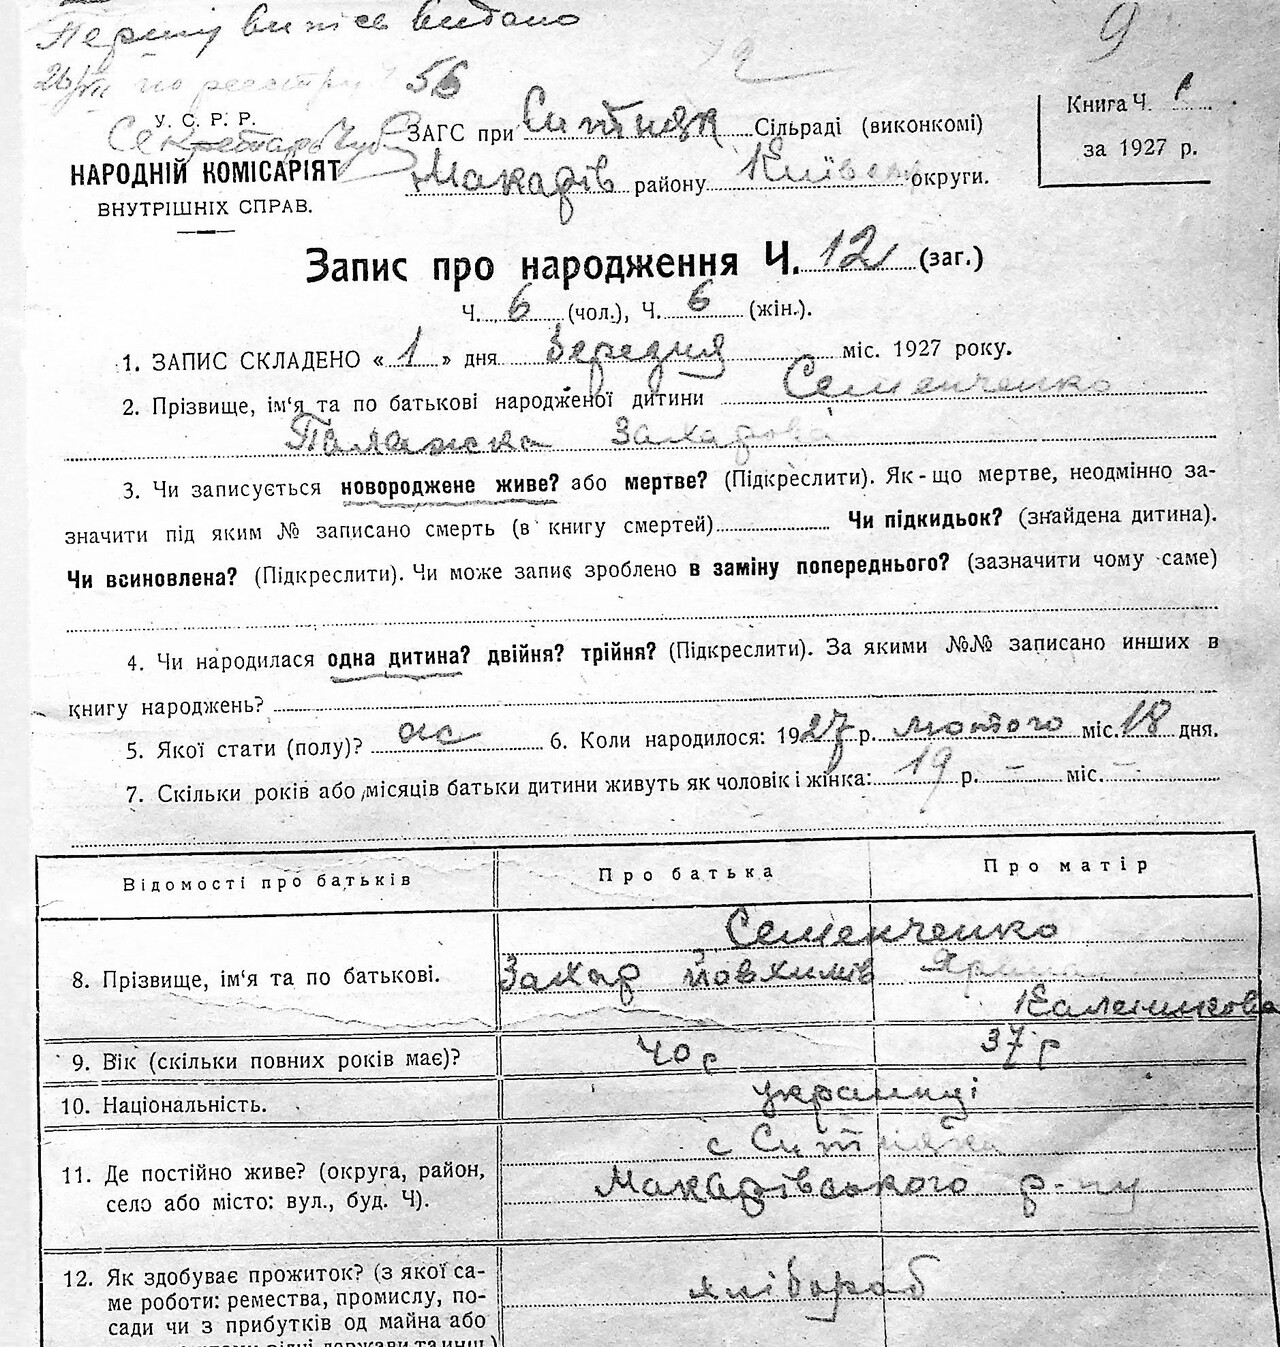 Перший випіс видано
26/VII по реестру 56
9
У. С. Р. Р.
Секретарь
НАРОДНІЙ КОМІСАРІЯТ
ВНУТРІШНІХ СПРАВ.
ЗАГС при Ситняк Сільраді (виконкомі)
Макарів району Київськ округи.
Книга Ч. 1
за 1927 р.
Запис про народження Ч. 12 (заг.)
Ч. 6 (чол.), Ч. 6 (жін.).
1. ЗАПИС СКЛАДЕНО « 1 » дня березня міс. 1927 року.
2. Прізвище, ім‘я та по батькові народженої дитини Семенченко
Палажка Захарова
3. Чи записується новороджене живе? або мертве? (Підкреслити). Як-що мертве, неодмінно за-
значити під яким № записано смерть (в книгу смертей) Чи підкидьок? (знайдена дитина).
Чи всиновлена? (Підкреслити). Чи може запис зроблено в заміну попереднього? (зазначити чому саме)
4. Чи народилася одна дитина? двійня? трійня? (Підкреслити). За якими №№ записано инших в
книгу народжень?
5. Якої стати (полу)? жс 6. Коли народилося: 1927 р. лютого міс. 18 дня.
7. Скільки років або місяців батьки дитини живуть як чоловік і жінка: 19 р. – міс. –
Відомості про батьків Про батька Про матір
Семенченко
8. Прізвище, ім‘я та по батькові. Захар Йовхимів Ярина
Калениkова
9. Вік (скільки повних років має)? 40 р 37 р
10. Національність. украинці
с Ситняки
11. Де постійно живе? (округа, район,
село або місто: вул., буд. Ч). Макарівського р-ну
12. Як здобуває прожиток? (з якої са-
ме роботи: ремества, промислу, по-
сади чи з прибутків од майна або
хлібороб